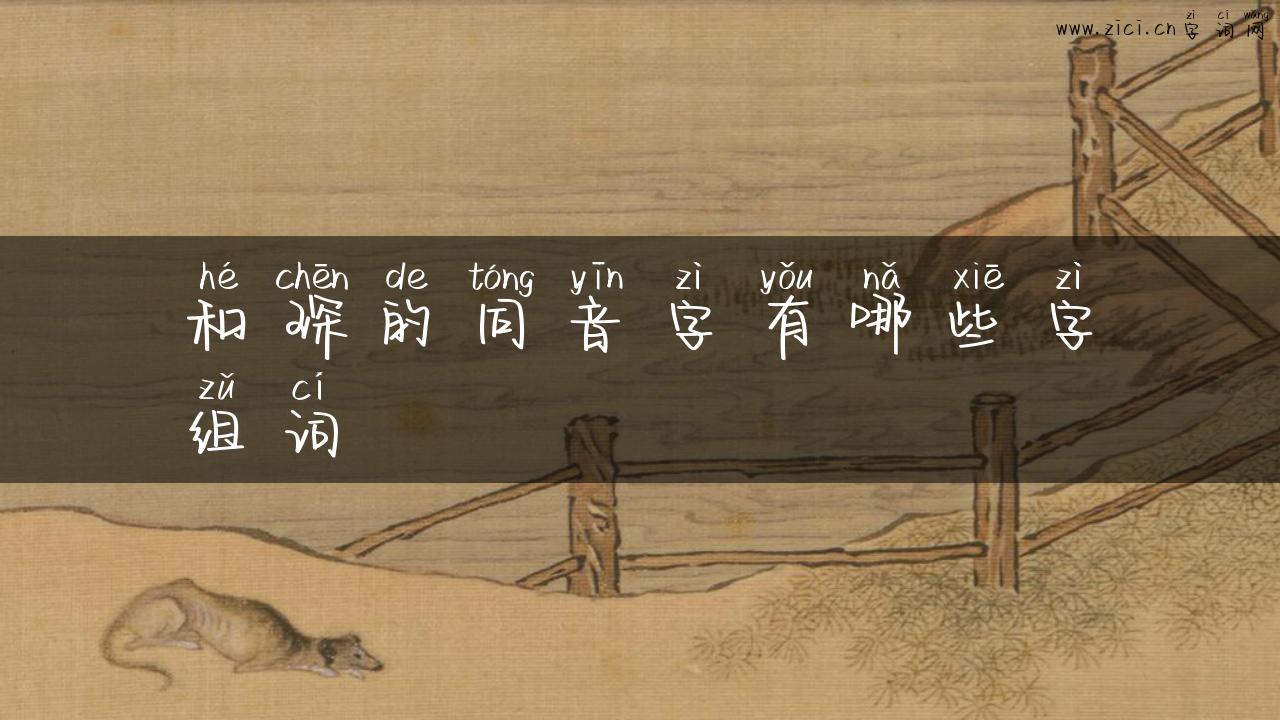 zì cí wǎng
www.zici.cn字词网
hé chēn de tóng yīn zì yǒu nǎ xiē zì
和琛的同音字有哪些字
zǔ cí
组词